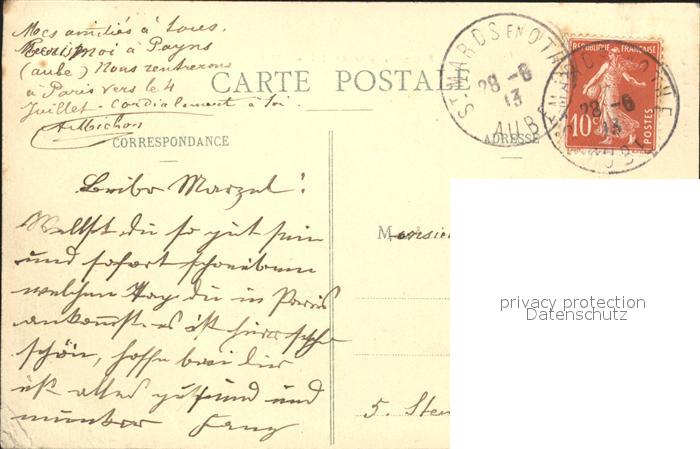 Mes amitiés à tous.
moi à Payns
(aube) Nous rentrerons
à Paris vers le 4
Juillet - Cordialement à toi.
AMichon
CARTE POSTALE
CORRESPONDANCE
ADRESSE
ST MARDS EN OTHE
28 -6
13
AUBE
REPUBLIQUE FRANÇAISE
10c
POSTES
28 -6
13
AUBE
Liebe Marzel!
Willst du so gut sein
und sofort schreiben
welchen Tag du in Paris
ankomst. es ist hier sehr
schön, hoffe bei dir
ist alles gesund und
munter
Monsie
5. Ste
privacy protection
Datenschutz